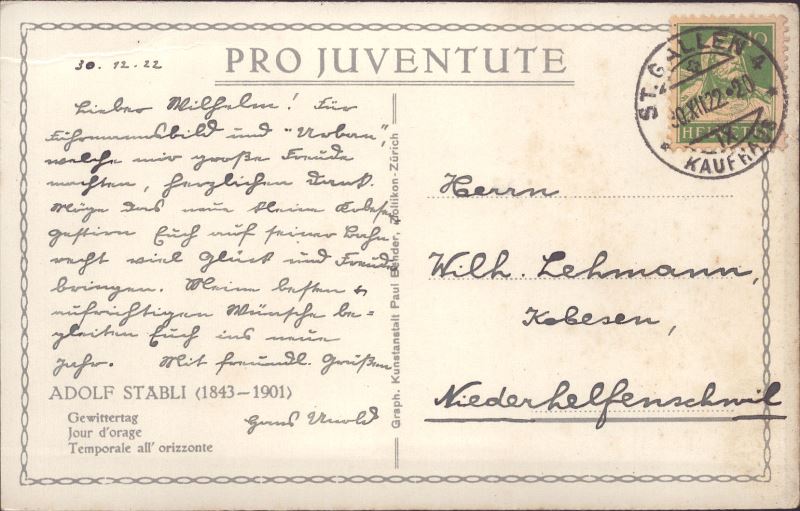 PRO JUVENTUTE
30.12.22
Lieber Wilhelm! Für
Fuhrmannsbild und "Urban",
welche mir große Freude
machten, herzlichen Dank.
Möge das neue kleine Kobesen
gestirn Euch auf seiner Bahn
recht viel Glück und Freude
bringen. Meine besten &
aufrichtigen Wünsche be=
gleiten Euch ins neue
Jahr. Mit freundl. Grüßen
Hans
ADOLF STÄBLI (1843–1901)
Gewittertag
Jour d'orage
Temporale all' orizzonte
Graph. Kunstanstalt Paul Bender, Zollikon-Zürich
ST. GALLEN 4
30.XII.22.-20
KAUFHAUS
10
HELVETIA
Herrn
Wilh. Lehmann,
Kobesen,
Niederhelfenschwil